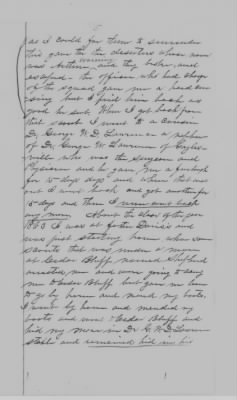 5
as I could for them to surrender
his gave to the deserters whose name
was Arthur and they broke and
escaped. The officer who had charge
of the squad gave me a
but I paid him back as
good he sent. When I got back from
that scout I went to a cousin
Dr. George W. D. Lawrence a nephew
of Dr. George W. Lawrence of Gayles-
ville who was the surgeon and
Physician and he gave me a furlough
for 15 days and when that was
out I went back and got another for
15 days and then I never went back
any more. About the close of the year
1863 I was at John Davis's and
was just starting home when some
scouts that were under a man
at Cedar Bluff named Shepherd
arrested me and were going to carry
me to Cedar Bluff but gave me leave
to go by home and mend my boots,
I went by home and mended my
boots and went to Cedar Bluff and
hid my mare in Dr. G. W. D. Lawrence
stable and remained hid in his